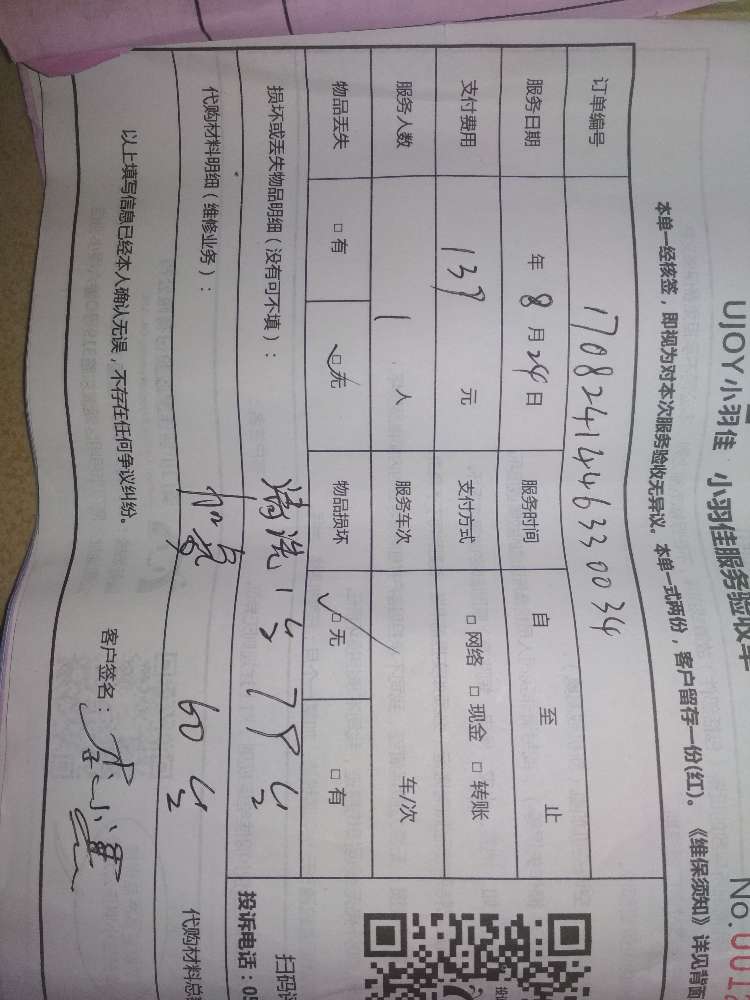 UJOY小羽佳 小羽佳服务验收单
No.001
本单一经核签，即视为对本次服务验收无异议。本单一式两份，客户留存一份(红)。《维保须知》详见背面
订单编号 1708241446330034
服务日期 年 8 月 24 日 服务时间 自 至 止
支付费用 138 元 支付方式 □ 网络 □ 现金 □ 转账
服务人数 1 人 服务车次 车/次
物品丢失 □ 有 □ 无 物品损坏 □ 无 □ 有
损坏或丢失物品明细（没有可不填）： 清洗 1台 78元
代购材料明细（维修业务）： 加氟 60元
以上填写信息已经本人确认无误，不存在任何争议纠纷。
客户签名：
扫码
投诉电话：05
代购材料总